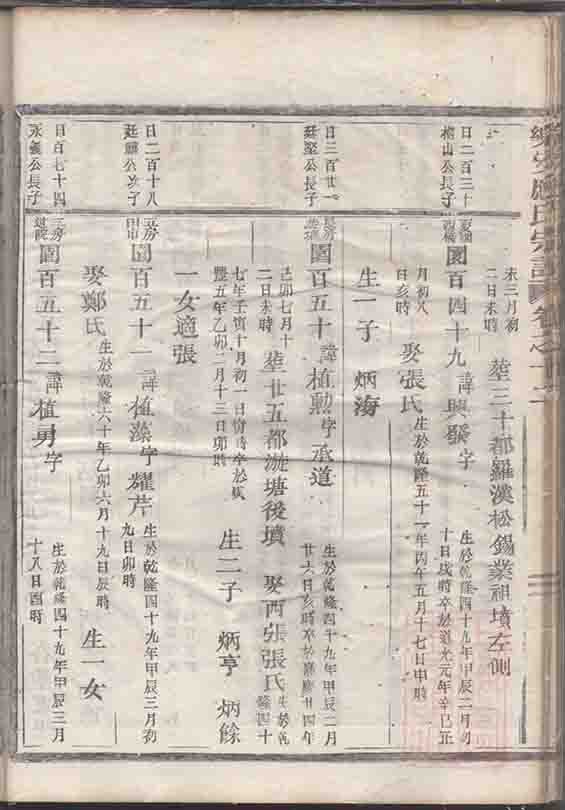 樂安 氏宗譜 卷之十二
未三月初
二日未時
塟三十都羅漢松錫業祖墳左側
日二百三十
公長子
圖百四十九 諱興發 字
生於乾隆四十九年甲辰二月初
十日戌時卒於道光元年辛巳正
月初八
日亥時
娶張氏
生於乾隆五十一年丙午五月十七日申時
生一子 炳海
日三百廿一
廷堅公長子
圖百五十 諱植勳 字承道
生於乾隆四十九年甲辰二月
廿六日亥時卒於嘉慶廿四年
己卯七月十
二日未時
塟廿五都游塘後墳 娶西張張氏
生於乾
隆四十
七年壬寅十月初一日 時卒於咸
豐五年乙卯二月十三日卯時
生二子 炳亨 炳餘
一女適張
日二百十八
廷 公次子
圖百五十一 諱植藻 字耀芹
生於乾隆四十九年甲辰三月初
九日卯時
娶鄭氏
生於乾隆六十年乙卯六月十九日辰時
生一女
日百七十四
永義公長子
圖百五十二 諱植勇 字
生於乾隆四十九年甲辰三月
十八日酉時